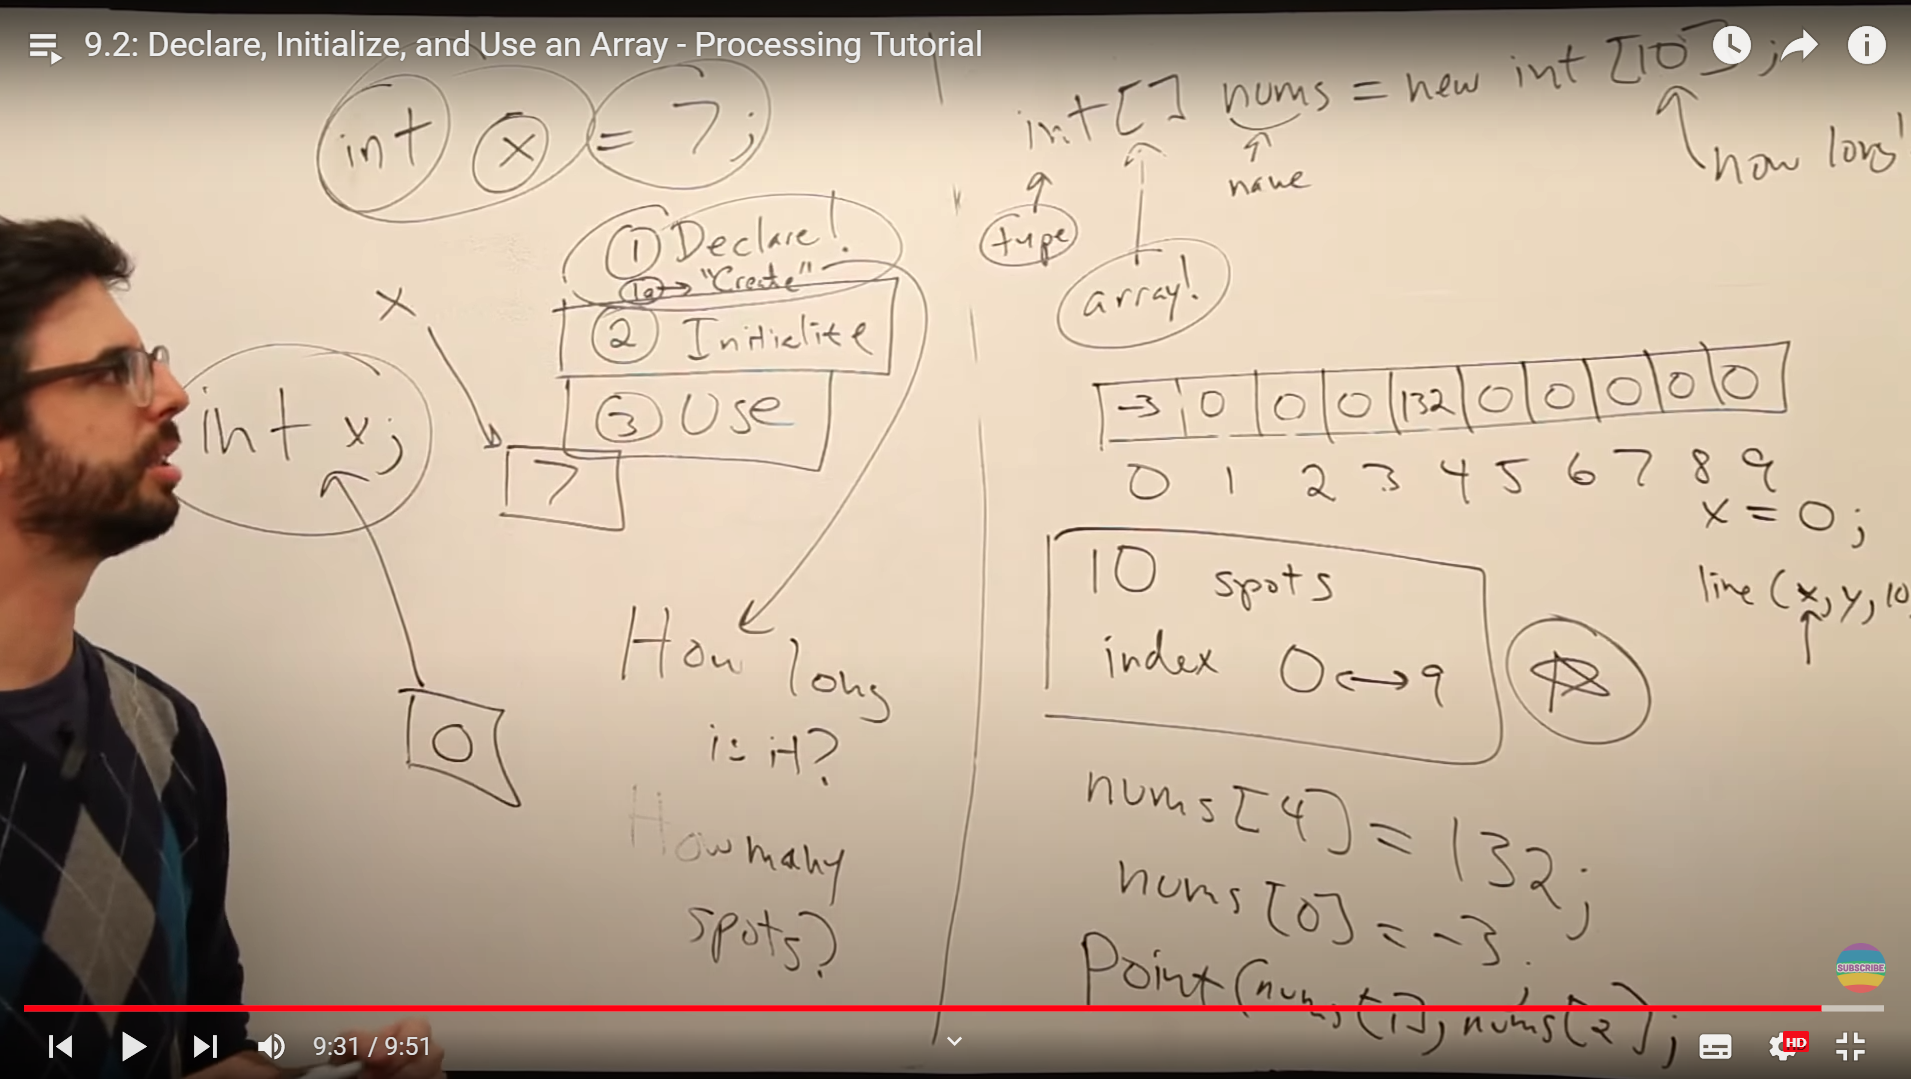 9.2: Declare, Initialize, and Use an Array - Processing Tutorial
int x = 7;
① Declare!
1a → "Create"
② Initialize
③ Use
x
7
int x;
0
How long
is it?
How many
spots?
int[] nums = new int [10];
type
array!
name
how long!
-3 0 0 0 132 0 0 0 0 0
0 1 2 3 4 5 6 7 8 9
x = 0;
line (x, y, 10,
10 spots
index 0 ↔ 9
nums[4] = 132;
nums[0] = -3;
Point(nums[1], nums[2];
SUBSCRIBE
9:31 / 9:51
HD